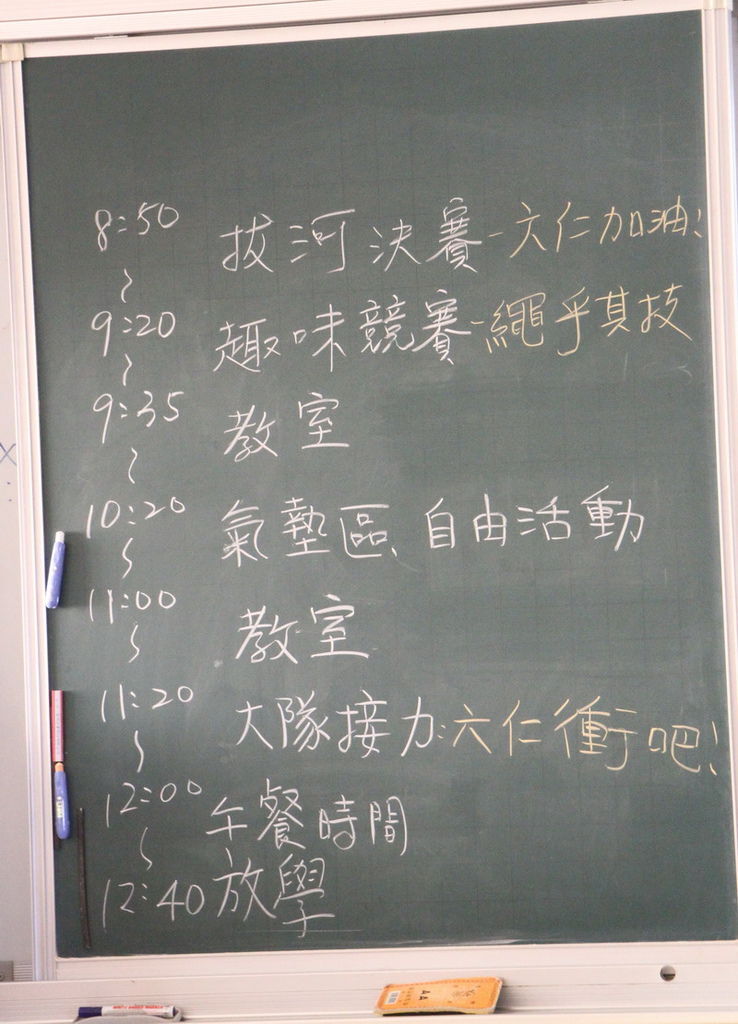 8:50 拔河決賽-六仁加油!
~
9:20 趣味競賽-繩乎其技
~
9:35 教室
~
10:20 氣墊區、自由活動
~
11:00 教室
~
11:20 大隊接力:六仁衝吧!
~
12:00 午餐時間
~
12:40 放學
AA